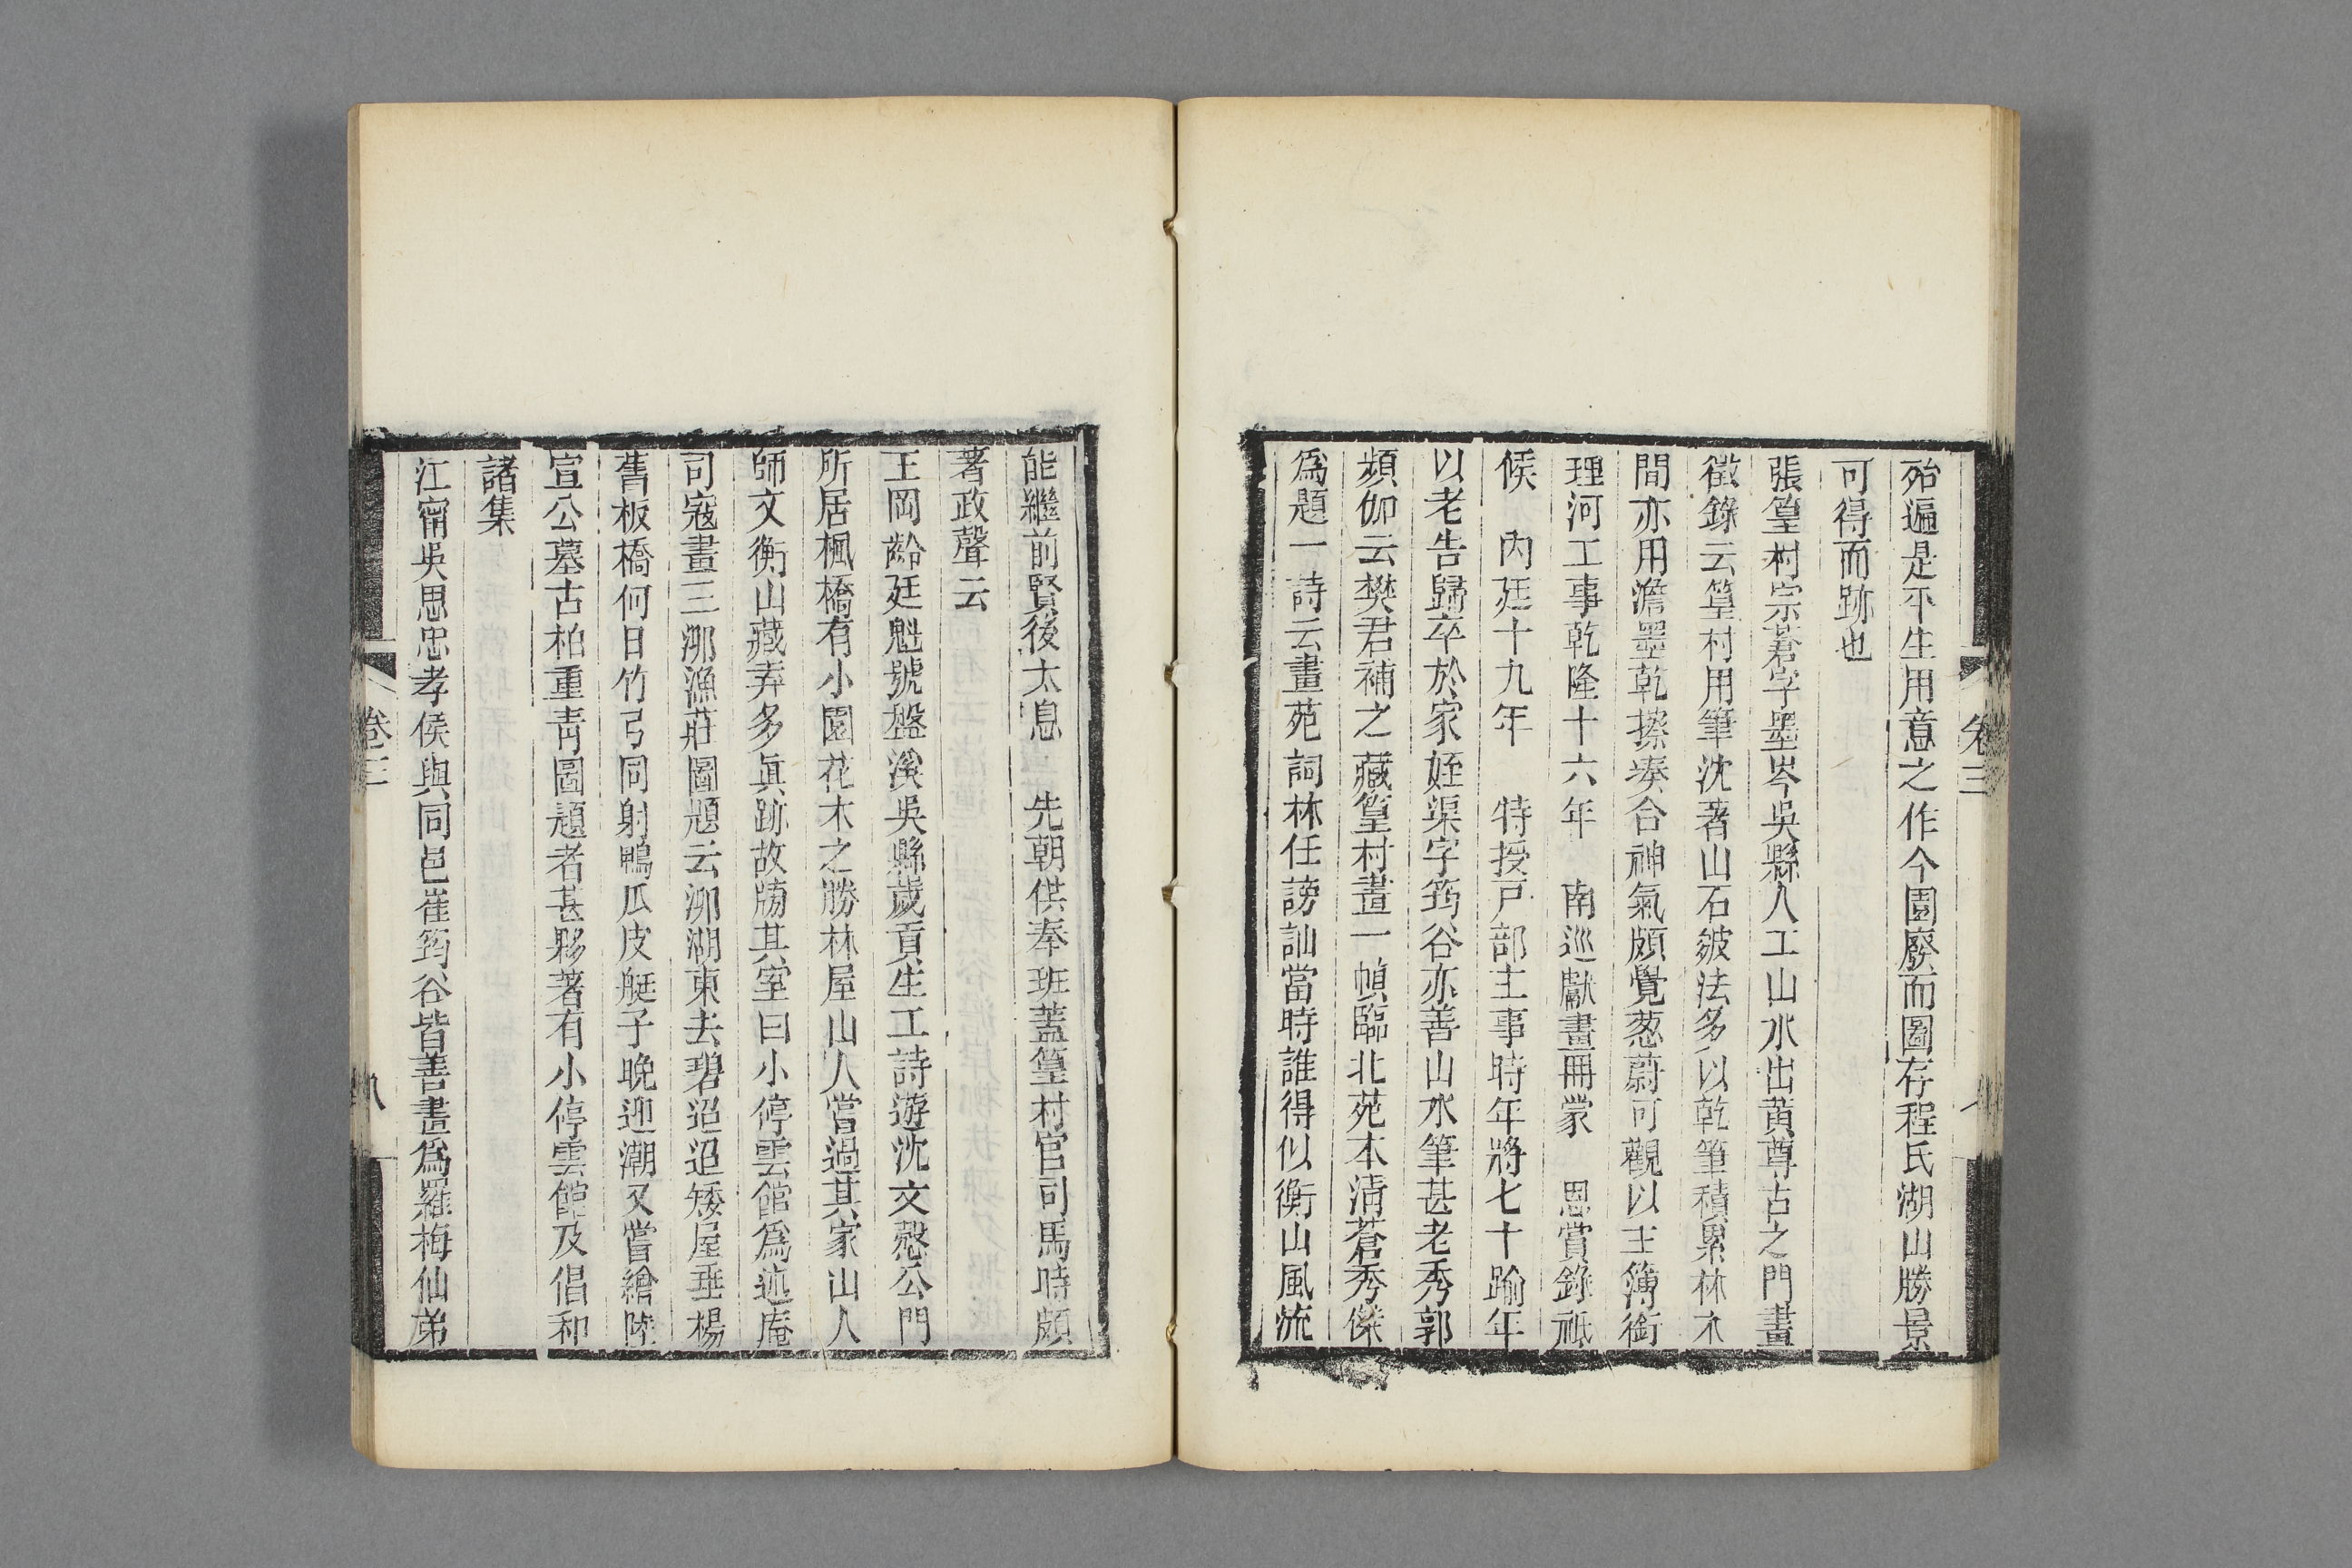 殆遍是平生用意之作今園廢而圖存程氏湖山勝景
可得而跡也
張篁村宗蒼字墨岑吳縣人工山水出黃尊古之門畫
徵錄云篁村用筆沈著山石皴法多以乾筆積累林木
間亦用澹墨乾擦湊合神氣頗覺葱蔚可觀以主簿銜
理河工事乾隆十六年　南巡獻畫冊蒙　恩賞錄祗
候　內廷十九年　特授戸部主事時年將七十踰年
以老告歸卒於家姪渠字筠谷亦善山水筆甚老秀郭
頻伽云樊君補之藏篁村畫一幀臨北苑本淸蒼秀傑
爲題一詩云畫苑詞林任謗訕當時誰得似衡山風流
卷三
能繼前賢後太息　先朝供奉班蓋篁村官司馬時頗
著政聲云
王岡齡廷魁號盤溪吳縣歲貢生工詩遊沈文慤公門
所居楓橋有小園花木之勝林屋山人嘗過其家山人
師文衡山藏弆多眞跡故牓其室曰小停雲館爲述庵
司寇畫三泖漁莊圖題云泖湖東去碧迢迢矮屋垂楊
舊板橋何日竹弓同射鴨瓜皮艇子晚迎潮又嘗繪陸
宣公墓古柏重靑圖題者甚夥著有小停雲館及倡和
諸集
江甯吳思忠孝侯與同邑崔筠谷皆善畫爲羅梅仙弟
卷三
八